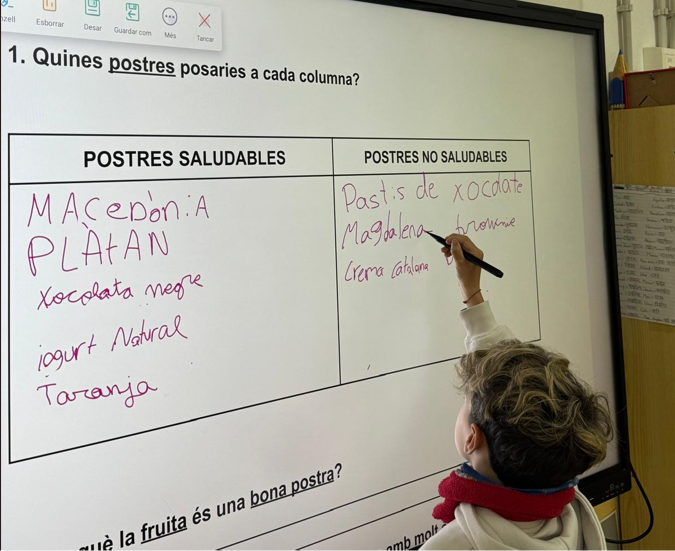 Esborrar
Desar
Guardar com
Més
Tancar
1. Quines postres posaries a cada columna?
POSTRES SALUDABLES
MAceDòniA
PLÀtAN
Xocolata negre
iogurt Natural
Taranja
POSTRES NO SALUDABLES
Pastis de xocdate
Magdalena brownie
Crema catalana
què la fruita és una bona postra?
amb molt